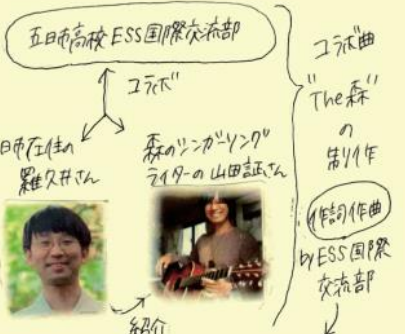 五日市高校ESS国際交流部
コラボ
日市在住の
羅久井さん
森のシンガーソング
ライターの山田証さん
紹介
コラボ曲
"The森"
の
制作
作詞作曲
by ESS国際
交流部